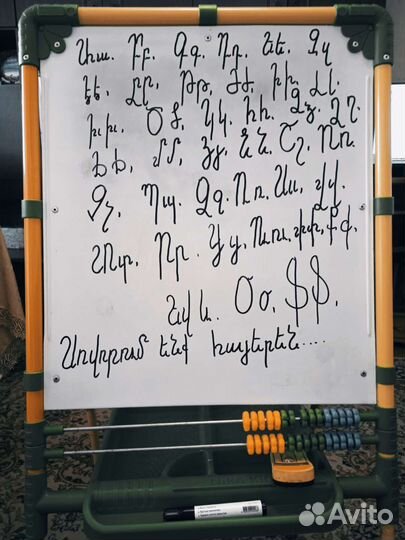 Աա. Բբ. Գգ. Դդ. Եե. Զզ
Էէ. Ըը. Թթ. Ժժ. Իի. Լլ.
Խխ. Ծծ. Կկ. Հհ. Ձձ. Ղղ.
Ճճ. Մմ. Յյ. Նն. Շշ. Ոո.
Չչ. Պպ. Ջջ. Ռռ. Սս. Վվ.
Տտ. Րր. Ցց. Ուու. Փփ. Քք.
Եվ և. Օօ. Ֆֆ.
Սովորում ենք հայերեն....
Avito